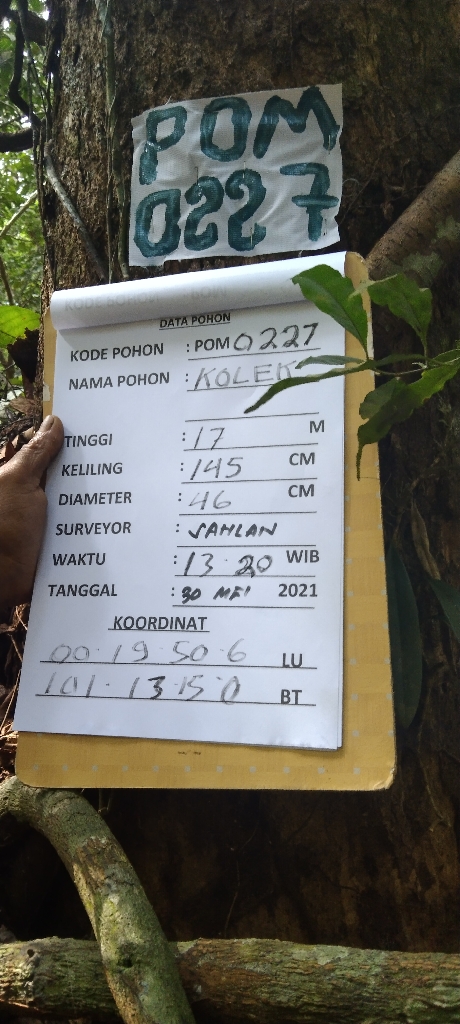 POM
0227
DATA POHON
KODE POHON : POM 0227
NAMA POHON : KOLEK
TINGGI : 17 M
KELILING : 145 CM
DIAMETER : 46 CM
SURVEYOR : SAHLAN
WAKTU : 13.20 WIB
TANGGAL : 30 MEI 2021
KOORDINAT
00.19.50.6 LU
101.13.15.0 BT